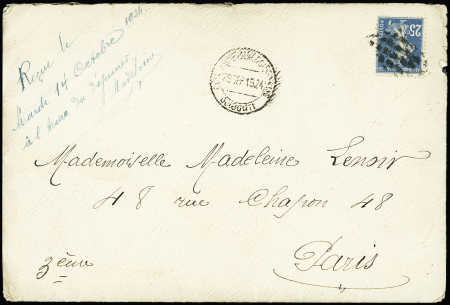 Reçue le
Mardi 14 Octobre 1924
à l'heure du déjeuner
Madeleine
25
Mademoiselle Madeleine Lenoir
48 rue Chapon 48
Paris
3ème